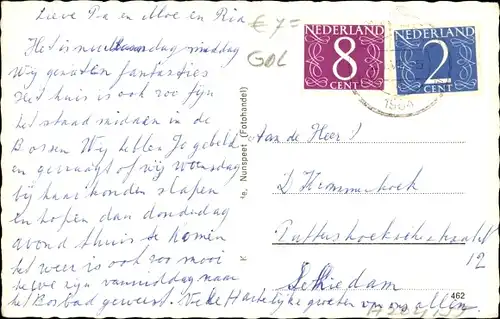 Lieve Pa en Moe en Ria
Het is nu maandag middag
Wij genieten fantasties
Het huis is ook zoo fijn
het staat midden in de
Bossen Wij hebben Jo gebeld
en gevraagd of wij woensdag
bij haar konden slapen
en hopen dan donderdag
avond thuis te komen
Het weer is ook zoo mooi
we zijn vanmiddag naar
het Bosbad geweest. Hartelijke groeten van ons allen
€ 7=
GDL
NEDERLAND
8
CENT
NEDERLAND
2
CENT
1964
Nunspeet (Fotohandel)
K
Aan de Heer
D Krommenhoek
12
Schiedam
462